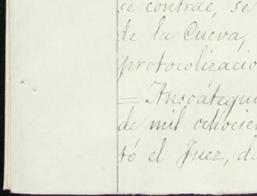 se contrae, se
de la Cueva,
protocolizacio
= Ansoátegui
de mil ochocien
tó el Juez, d